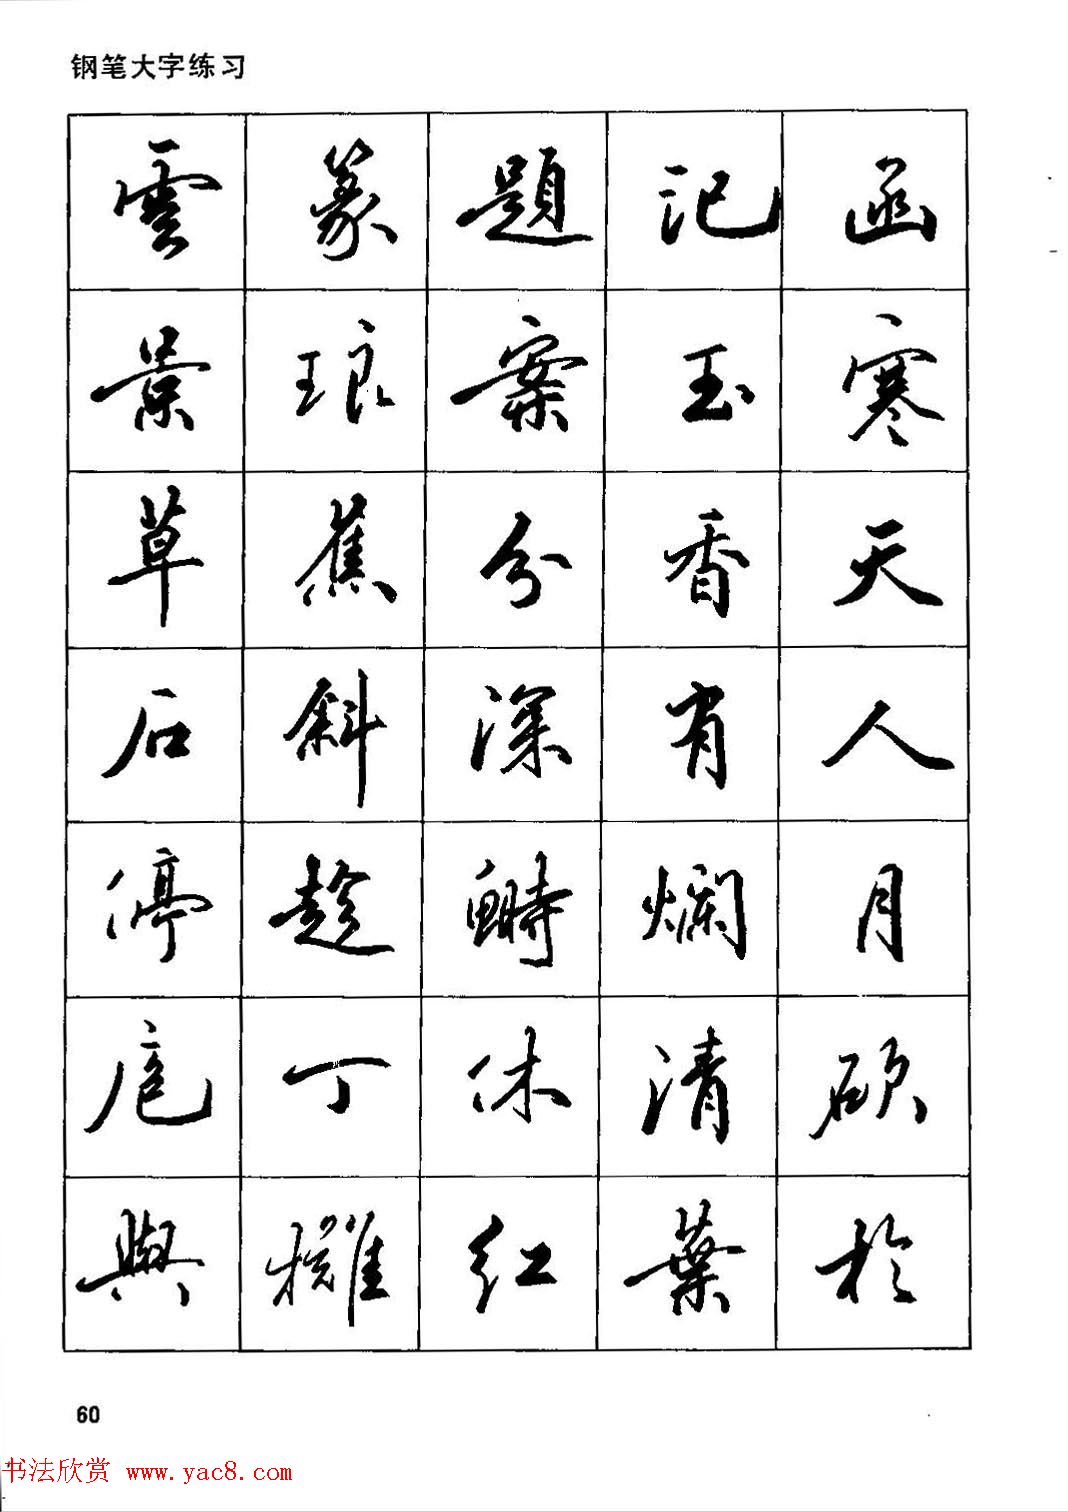 钢笔大字练习
雲 篆 題 記 函
景 琅 案 玉 寒
草 蕉 分 香 天
石 斜 深 有 人
停 趁 鰣 爛 月
扈 丁 休 清 碩
與 櫂 紅 葉 於
60
书法欣赏 www.yac8.com